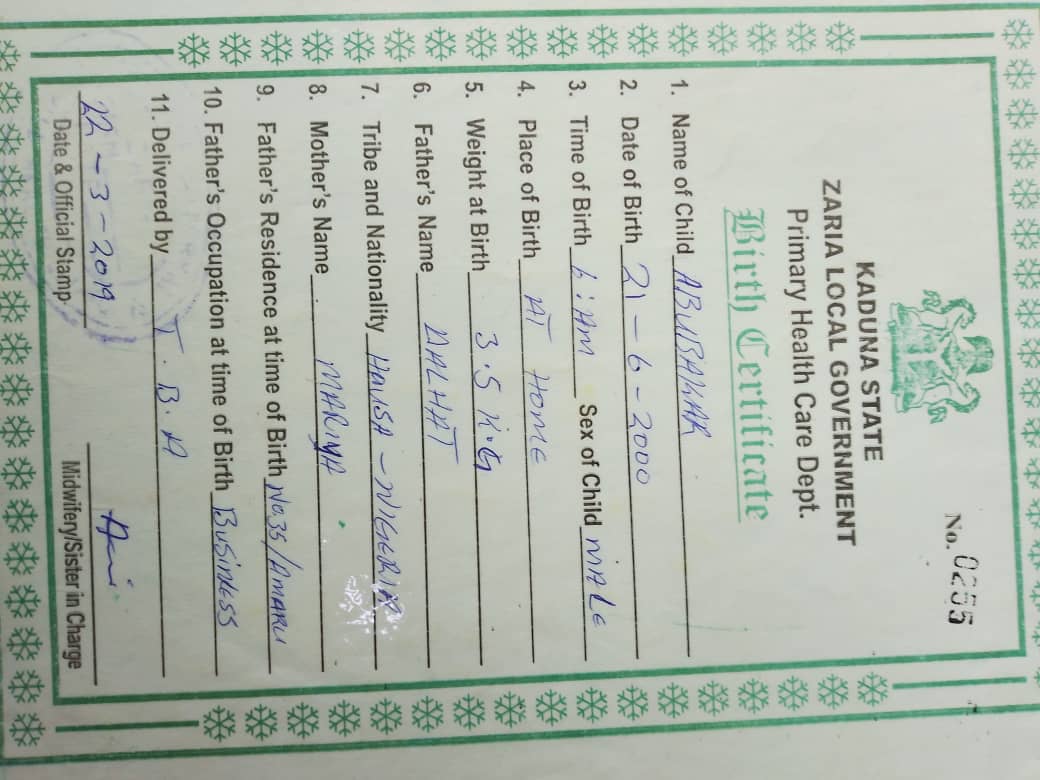 No. 0255
KADUNA STATE
ZARIA LOCAL GOVERNMENT
Primary Health Care Dept.
Birth Certificate
1. Name of Child ABUBAKAR
2. Date of Birth 21-6-2000
3. Time of Birth 6:AM Sex of Child MALE
4. Place of Birth AT HOME
5. Weight at Birth 3.5 K.G
6. Father's Name DALHAT
7. Tribe and Nationality HAUSA - NIGERIA
8. Mother's Name MARIYA
9. Father's Residence at time of Birth No.35/AMARU
10. Father's Occupation at time of Birth BUSINESS
11. Delivered by T.B.A
22-3-2019
Date & Official Stamp
Midwifery/Sister in Charge